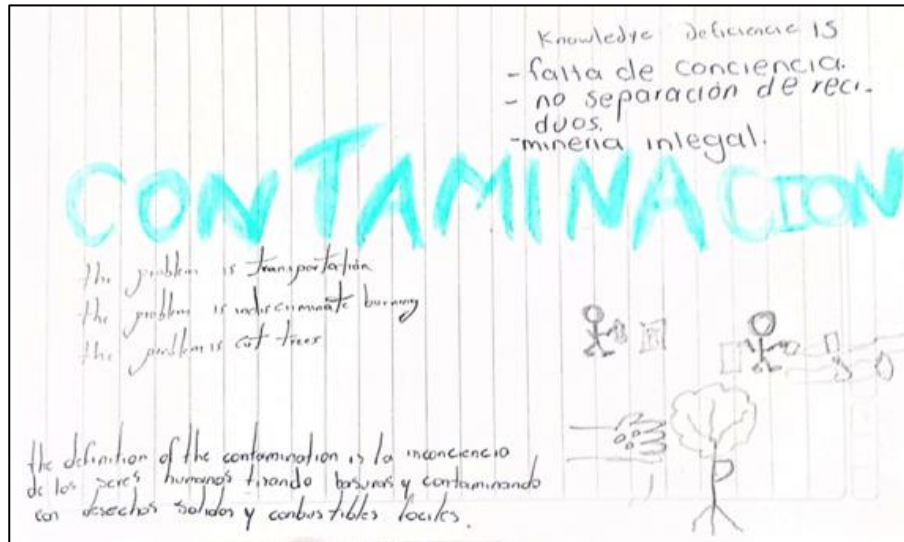 Knowledge deficiencie is
- falta de conciencia.
- no separación de reci-
duos.
- mineria inlegal.
CONTAMINACION
the problem is transportatión
the problem is indiscriminate burning
the problem is cut trees
the definition of the contamination is la inconciencia
de los seres humanos tirando basuras y contaminando
con desechos solidos y conbustibles fociles.